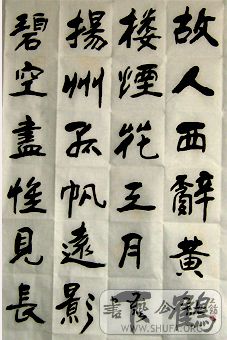 故人西辭黃鶴
楼煙花三月下
揚州孤帆遠影
碧空盡惟見長
書藝公社
WWW.SHUFA.ORG